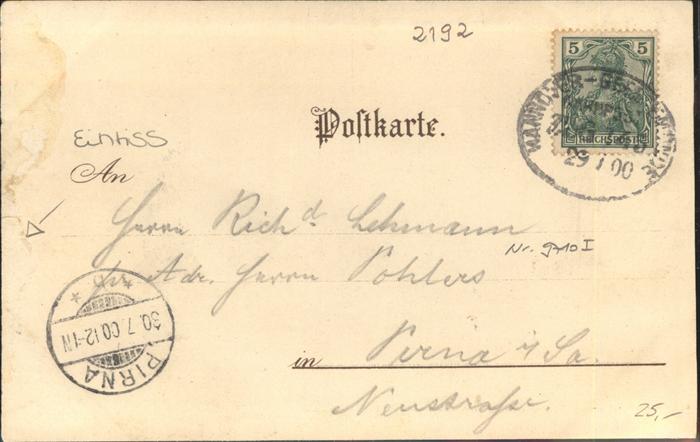 2192
5 5
REICHSPOST
HANNOVER - GEESTEMÜNDE
29 7 00
Postkarte.
Einriss
An
Herrn Richd. Lehmann
Nr. 9710 I
pr. Adr. Herrn Pohlers
in Pirna i/Sa.
Neustraße.
PIRNA
30. 7. 00. 12-1N
25,-